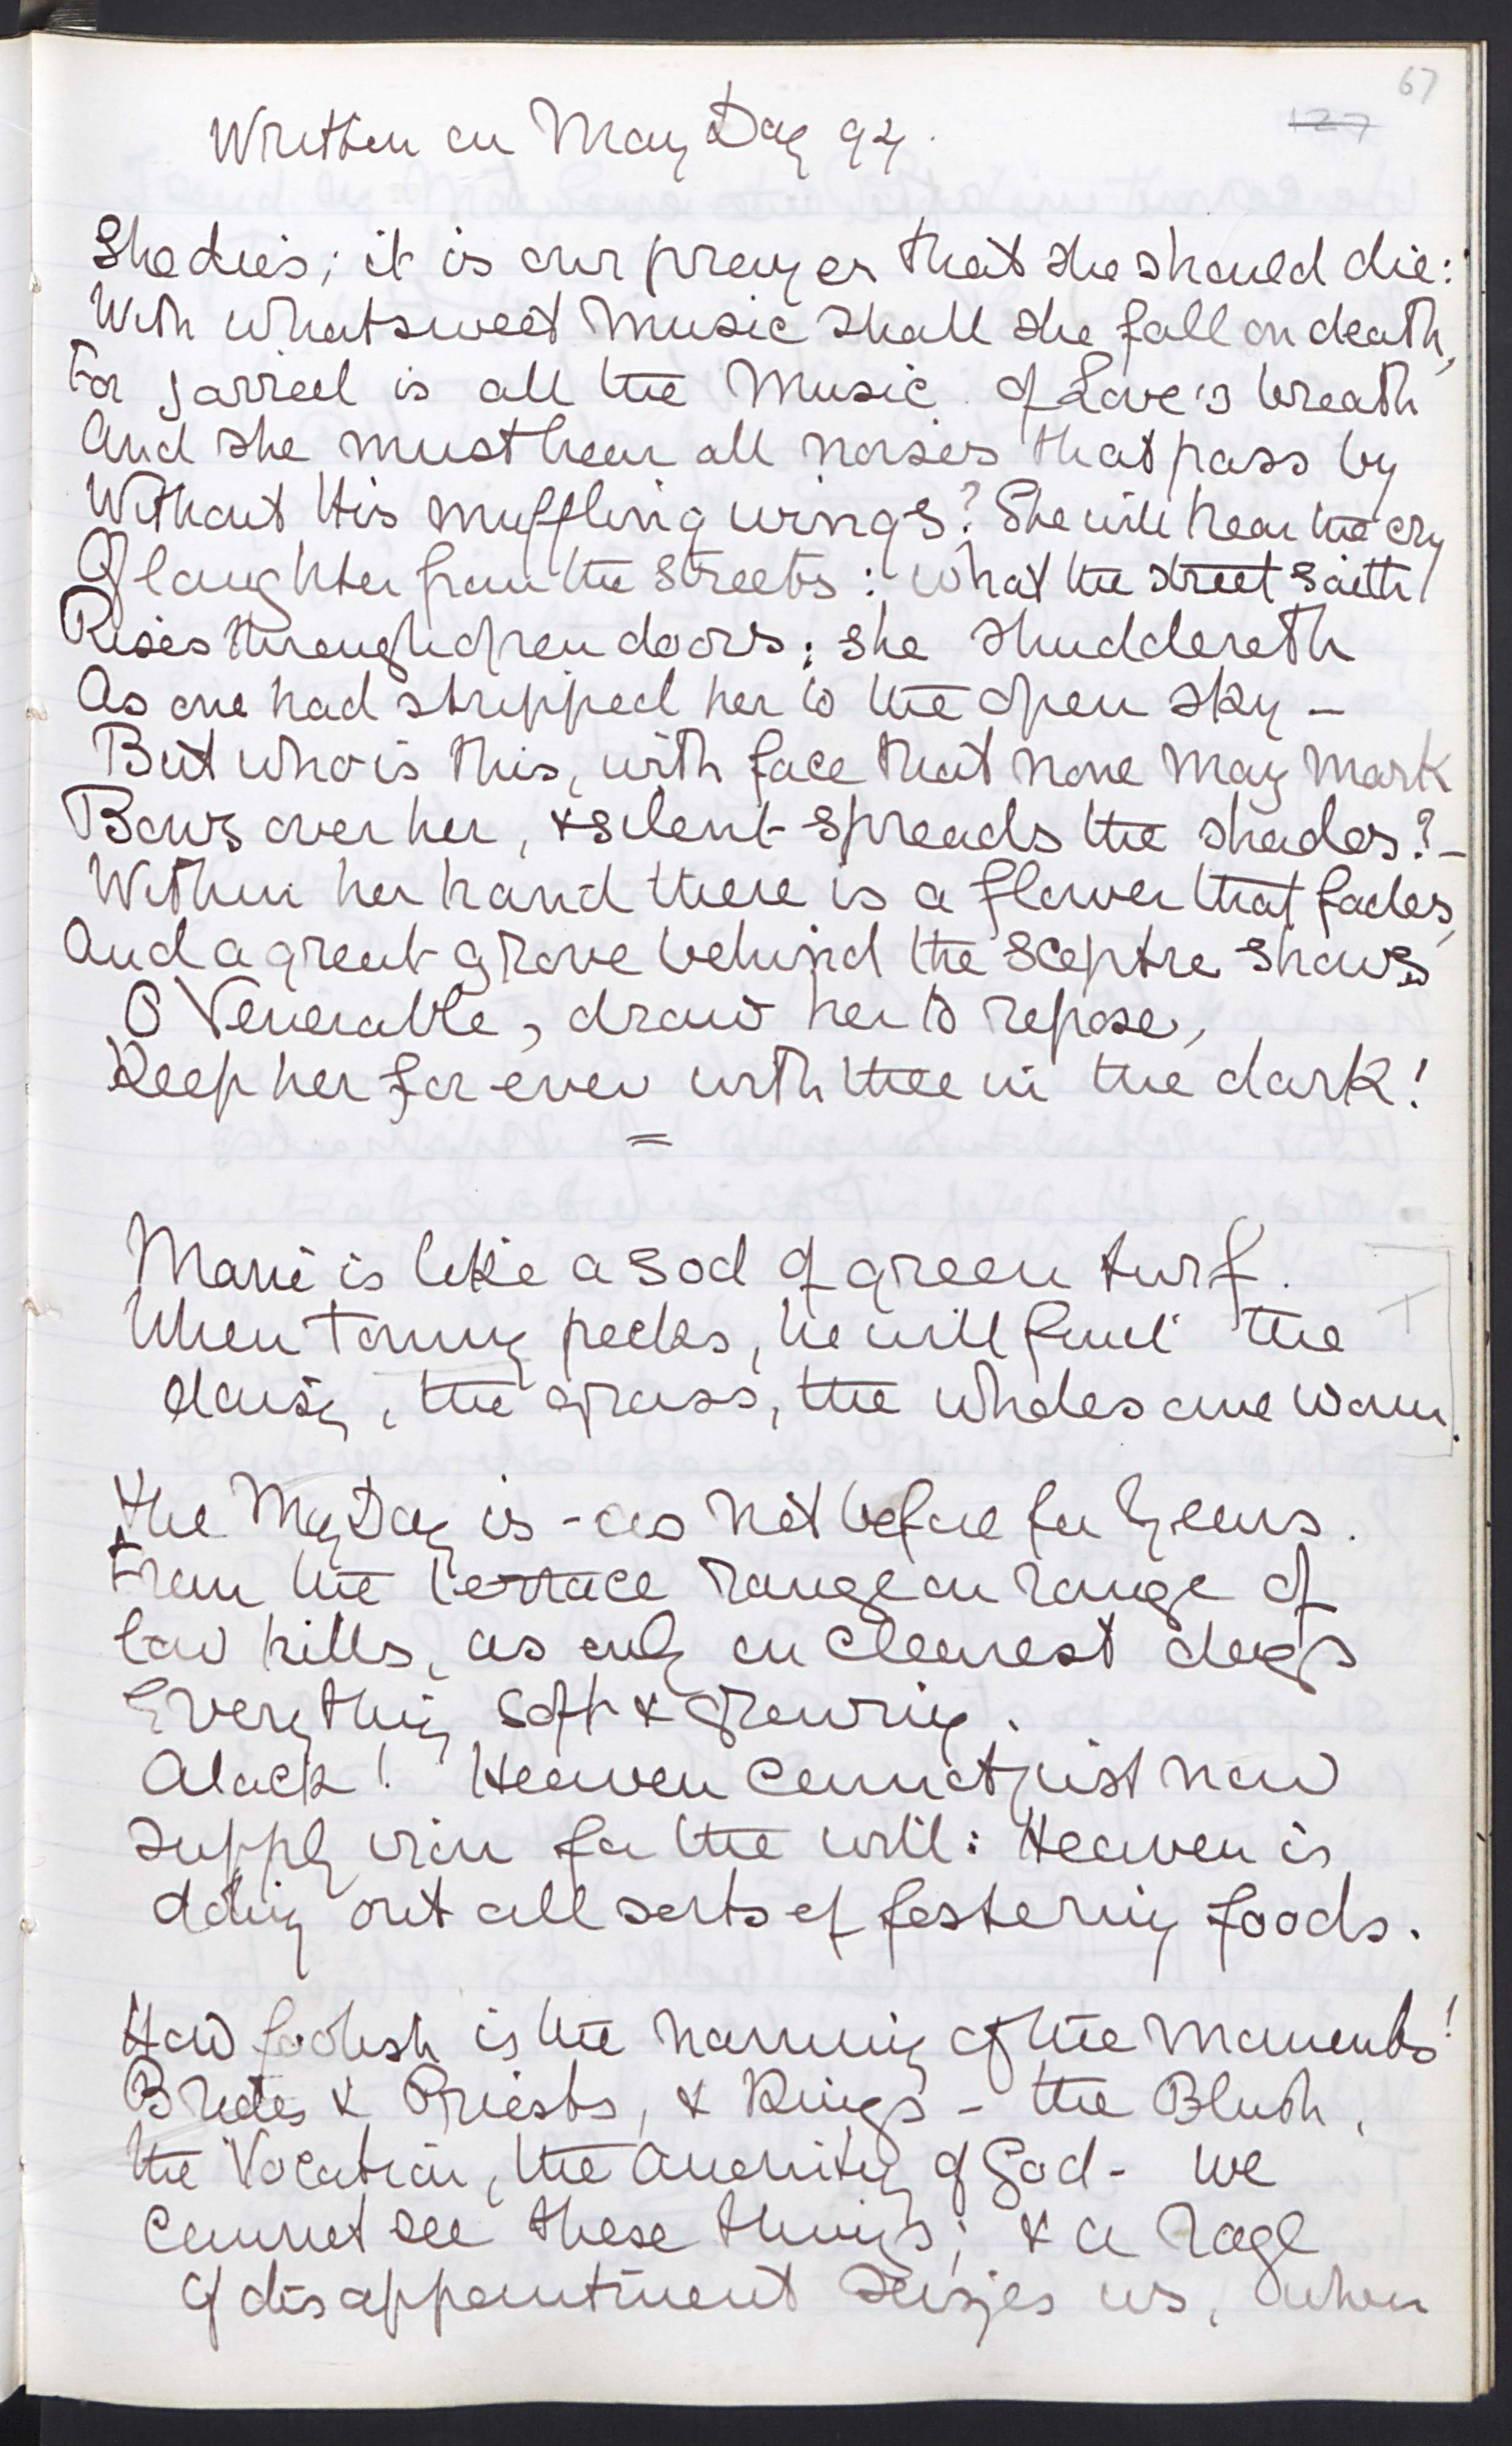 67
127
Written on May Day 94.
She dies; it is our prayer that she should die:
With what sweet Music shall she fall on death,
For jarred is all the Music of Love's breath
And she must hear all noises that pass by
Without His muffling wings? She will hear the cry
Of laughter from the streets: what the street saith
Rises through open doors; she shuddereth
As one had stripped her to the open sky –
But who is this, with face that none may mark
Bows over her, & silent spreads the shades? –
Within her hand there is a flower that fades,
And a great grove behind the sceptre shows
O Venerable, draw her to repose,
Keep her for ever with thee in the dark!
=
Marie is like a sod of green turf.
When Tommy pecks, he will find the
daisy, the grass, the wholesome worm.
The May Day is – as not before for years.
From the terrace range on range of
low hills, as only on clearest days
Everything soft & growing.
Alack! Heaven cannot just now
supply wine for the will: Heaven is
doling out all sorts of festering foods.
How foolish is the naming of the moments!
Brides & Priests, & Kings – the Blush,
the Vocation, the of God – we
cannot see these things; & a rage
of disappointment seizes us, when